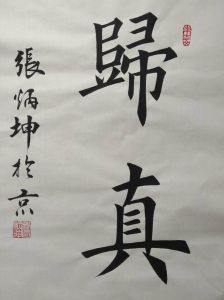 歸真
張炳坤於京